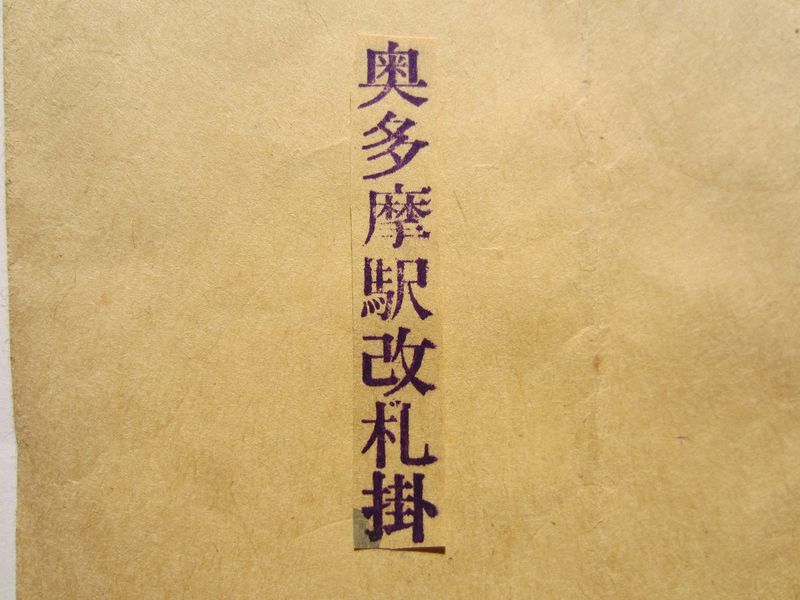 奥多摩駅改札掛